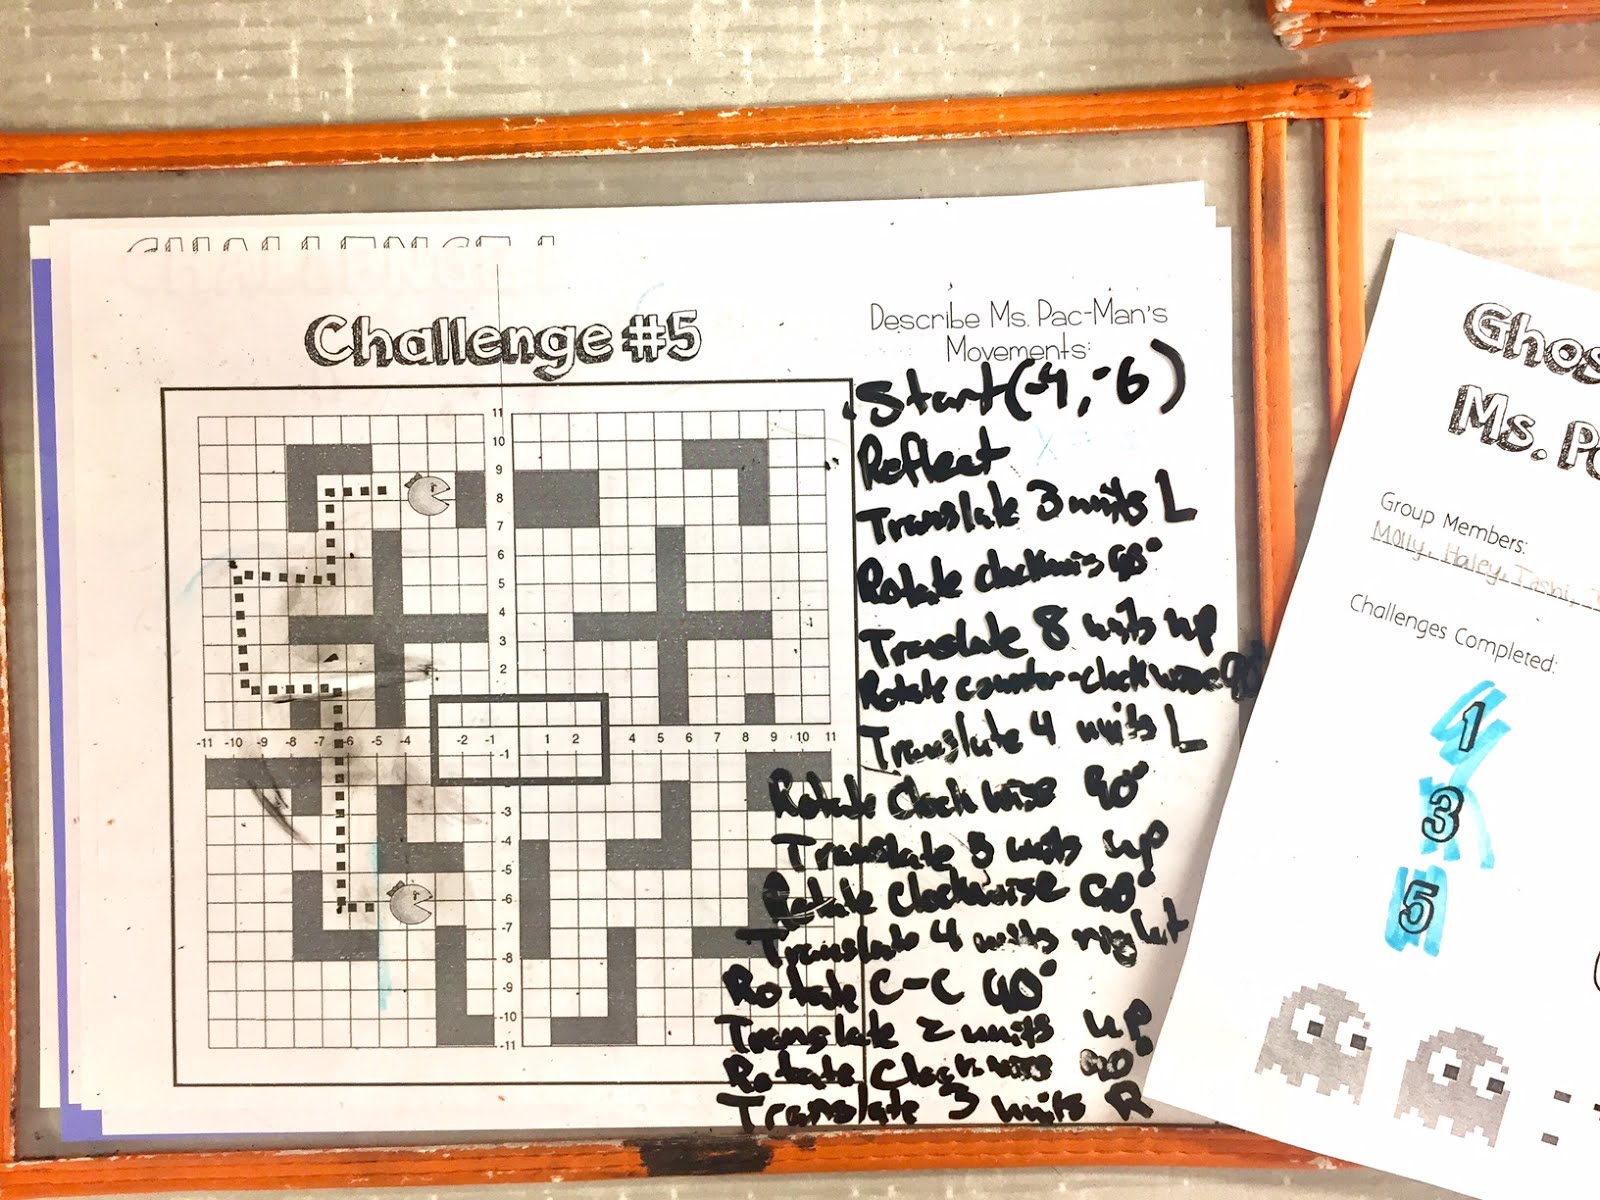 CHALLENGE
Challenge #5
Describe Ms. Pac-Man's
Movements:
Start (-4, -6)
Reflect
Translate 3 units L
Rotate clockwis 90°
Translate 8 units up
Rotate counter-clockwise 90°
Translate 4 units L
Rotate Clockwise 90°
Translate units up
Rotate Clockwise 90°
Translate 4 units right
Rotate C-C 90°
Translate 2 units up
Rotate Clockwise 90°
Translate 3 units R
11
10
9
8
7
6
5
4
3
2
-11 -10 -9 -8 -7 -6 -5 -4 -2 -1 1 2 4 5 6 7 8 9 10 11
-1
-3
-4
-5
-6
-7
-8
-9
-10
-11
Ghos
Ms. Pa
Group Members:
Molly, Haley, Tashi,
Challenges Completed:
1
3
5